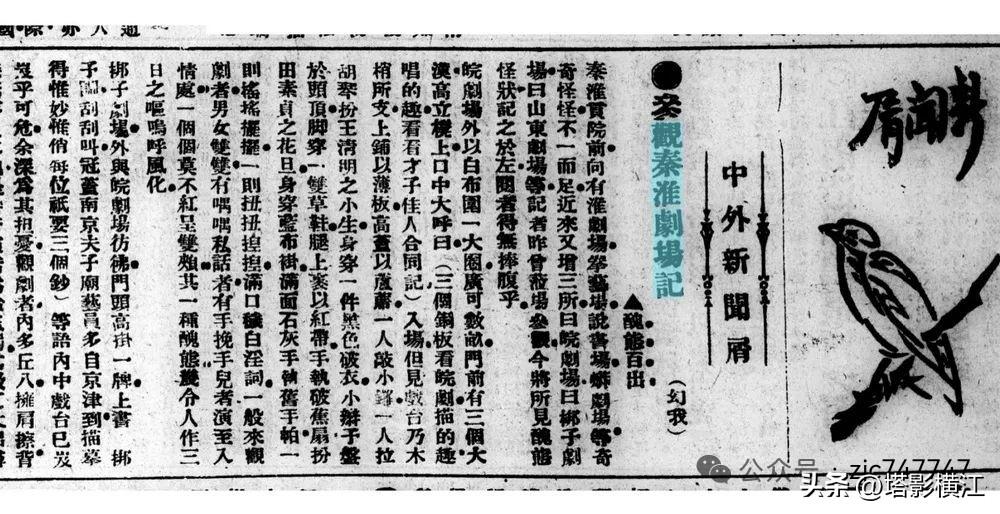 新聞屑
中外新聞屑
●叅觀秦淮劇場記
▲醜態百出
（幻我）
秦淮貢院前向有淮劇場拳藝場說書場蟒劇場等奇
奇怪怪不一而足近來又增三所曰皖劇場曰綁子劇
場曰山東劇場等記者昨曾蒞場叅觀今將所見醜態
怪狀記之於左閱者得無捧腹乎
皖劇場外以白布圍一大圈廣可數畝門前有三個大
漢高立櫈上口中大呼曰（三個銅板看皖劇描的趣
唱的趣看看才子佳人合同記）入場但見戲台乃木
梢所支上鋪以薄板高蓋以蘆蓆一人敲小鑼一人拉
胡琴扮王清明之小生身穿一件黑色破衣小辮子盤
於頭頂脚穿一雙草鞋腿上裹以紅帶手執破蕉扇扮
田素貞之花旦身穿藍布褂滿面石灰手執舊手帕一
則搖搖擺擺一則扭扭揑揑滿口穢白淫詞一般來觀
劇者男女雙雙有喁喁私話者有手挽手兒者演至入
情處一個個莫不紅呈雙頰其一種醜態幾令人作三
日之嘔嗚呼風化
綁子劇場外與皖劇場彷彿門頭高掛一牌上書 綁
子 刮刮叫冠蓋南京夫子廟藝員多自京津到描摹
得惟妙惟俏每位祇要三個鈔）等語內中戲台已岌
岌乎可危余深為其担憂觀劇者內多丘八擁肩擦背
公众号 · zjc747747
头条@塔影横江